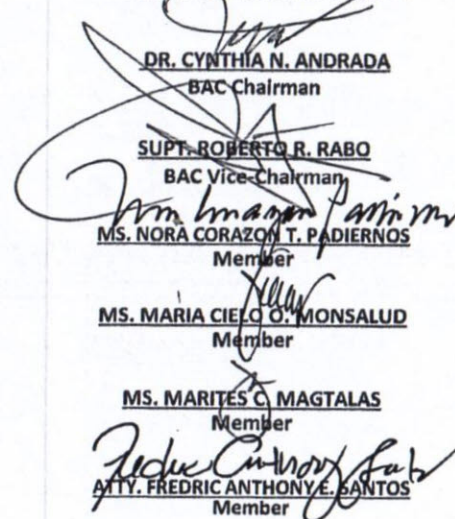 DR. CYNTHIA N. ANDRADA
BAC Chairman
SUPT. ROBERTO R. RABO
BAC Vice-Chairman
MS. NORA CORAZON T. PADIERNOS
Member
MS. MARIA CIELO O. MONSALUD
Member
MS. MARITES C. MAGTALAS
Member
Fredric Anthony Santos
ATTY. FREDRIC ANTHONY E. SANTOS
Member